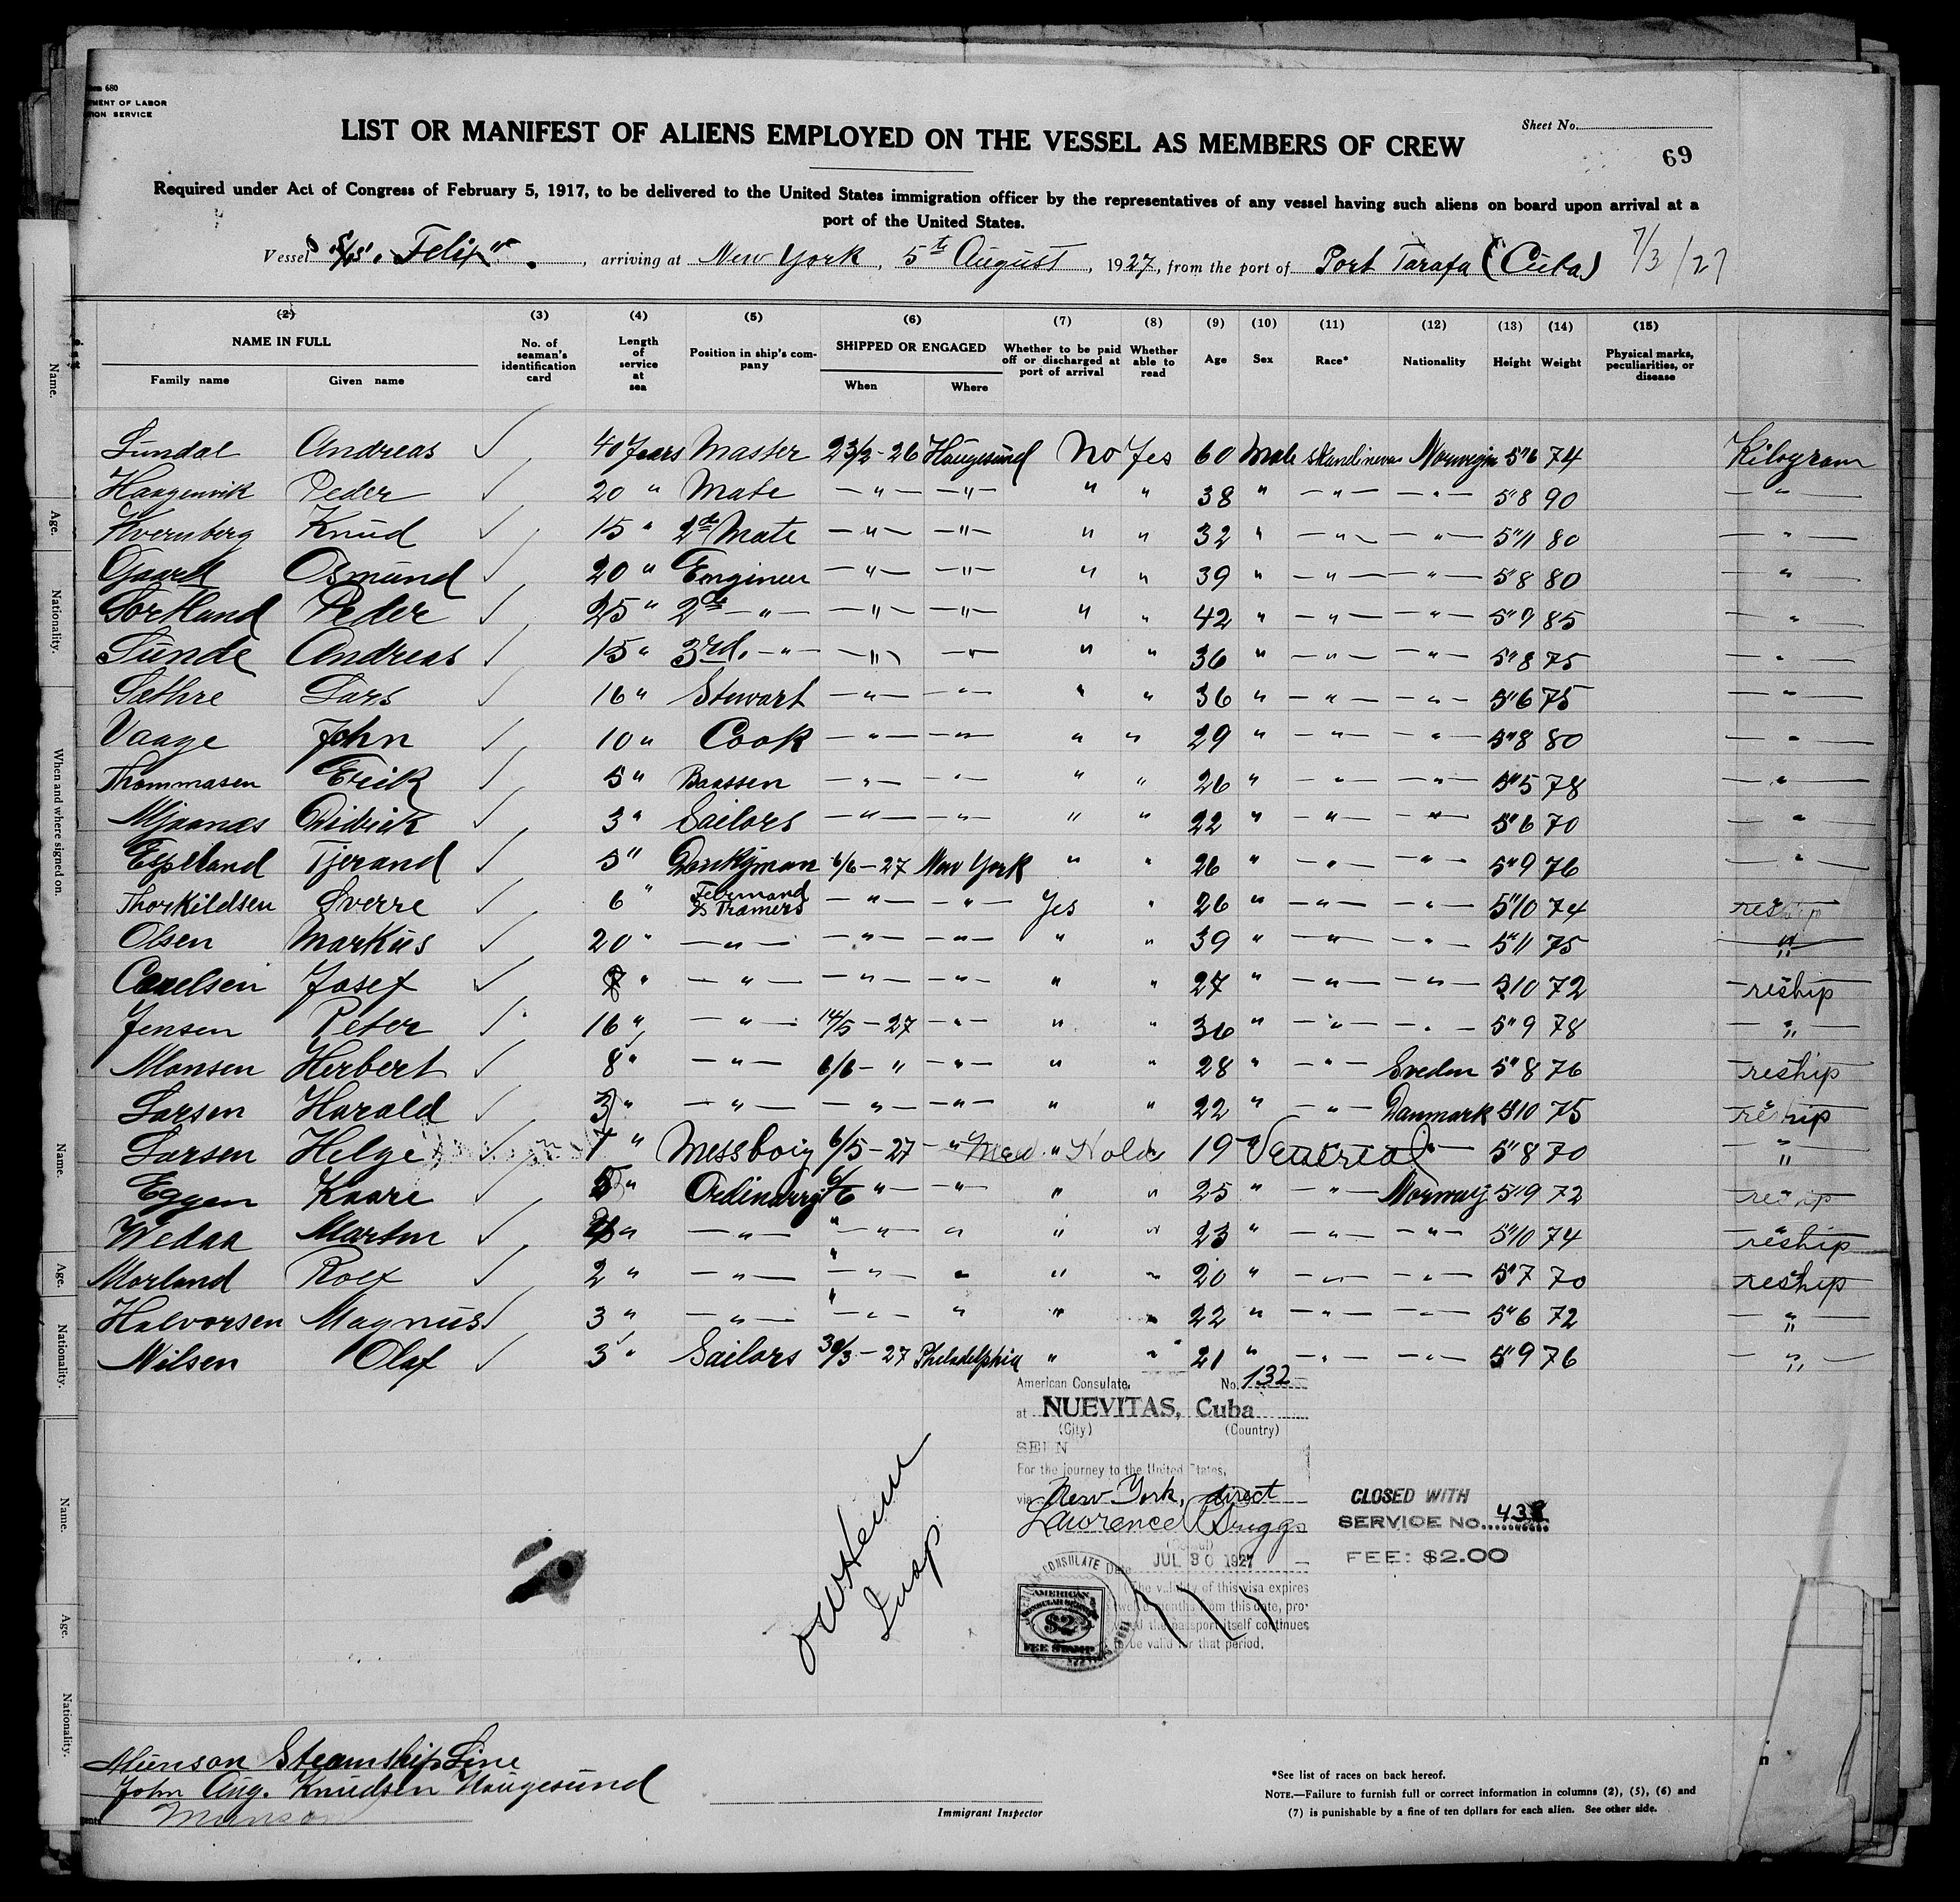 Form 680
MENT OF LABOR
TION SERVICE
Sheet No.
LIST OR MANIFEST OF ALIENS EMPLOYED ON THE VESSEL AS MEMBERS OF CREW
69
Required under Act of Congress of February 5, 1917, to be delivered to the United States immigration officer by the representatives of any vessel having such aliens on board upon arrival at a
port of the United States.
Vessel S/S "Felix", arriving at New York, 5th August, 1927, from the port of Port Tarafa (Cuba) 7/3/27
(2) (3) (4) (5) (6) (7) (8) (9) (10) (11) (12) (13) (14) (15)
NAME IN FULL
Family name Given name
No. of seaman's identification card
Length of service at sea
Position in ship's company
SHIPPED OR ENGAGED
When Where
Whether to be paid off or discharged at port of arrival
Whether able to read
Age Sex Race* Nationality Height Weight
Physical marks, peculiarities, or disease
Sundal Andreas ✓ 40 Years Master 23/2-26 Haugesund No Yes 60 Male Skandineva Norwegin 5"6 74 Kilogram
Haagenvik Peder ✓ 20 " Mate — " — — " — " " 38 " — " — — " — 5"8 90 — " —
Kvernberg Knud ✓ 15 " 2d Mate — " — — " — " " 32 " — " — — " — 5"11 80 — " —
Gaard Osmund ✓ 20 " Engineer — " — — " — " " 39 " — " — — " — 5"8 80 — " —
Sortland Peder ✓ 25 " 2d — " — — " — — " — " " 42 " — " — — " — 5"9 85 — " —
Sunde Andreas ✓ 15 " 3rd. — " — — " — — " — " " 36 " — " — — " — 5"8 75 — " —
Sæthre Lars ✓ 16 " Stewart — " — — " — " " 36 " — " — — " — 5"6 75 — " —
Vaage John ✓ 10 " Cook — " — — " — " " 29 " — " — — " — 5"8 80 — " —
Thommasen Erik ✓ 5 " Baassen — " — — " — " " 26 " — " — — " — 5"5 78 — " —
Mjaanæs Didrick ✓ 3 " Sailors — " — — " — " " 22 " — " — — " — 5"6 70 — " —
Espeland Tjerand ✓ 5 " Donkyman 6/6-27 New York " " 26 " — " — — " — 5"9 76 — " —
Thorkildsen Sverre ✓ 6 " Feurmand & Tramers — " — — " — Yes " 26 " — " — — " — 5"10 74 reship
Olsen Markus ✓ 20 " — " — — " — — " — " " 39 " — " — — " — 5"11 75 — " —
Josef ✓ " — " — — " — — " — " " 27 " — " — — " — 5"10 72 reship
Jensen Peter ✓ 16 " — " — 14/5-27 — " — " " 36 " — " — — " — 5"9 78 — " —
Monsen Herbert ✓ 8 " — " — 6/6-" — " — " " 28 " — " — Sveden 5"8 76 reship
Larsen Harald ✓ 3 " — " — — " — — " — " " 22 " — " — Danmark 5"10 75 reship
Larsen Helge ✓ 1 " Messboiy 6/5-27 — " — Med " Hold 19 Venereal — " — 5"8 70 — " —
Eggen Kaare ✓ 5 " Ordinarry 6/6 " — — " — " " 25 " — " — Norway 5"9 72 reship
Wedaa Martin ✓ 4 " — " — " — " — " " " 23 " — " — — " — 5"10 74 reship
Morland Rolf ✓ 2 " — " — " — " — " " " 20 " — " — — " — 5"7 70 reship
Halvorsen Magnus ✓ 3 " — " — " — " — " " " 22 " — " — — " — 5"6 72 — " —
Nilsen Olaf ✓ 3 " Sailors 30/3-27 Philadelphia " " 21 " — " — — " — 5"9 76 — " —
American Consulate. No. 132
at NUEVITAS, Cuba
(City) (Country)
SEEN
For the journey to the United States,
via New York, direct
Lawrence Briggs
(Consul)
Date JUL 30 1927
(The validity of this visa expires
twelve months from this date, pro-
vided the passport itself continues
to be valid for that period.
CONSULATE
AMERICAN
CONSULAR SERVICE
$2
FEE STAMP
CLOSED WITH
SERVICE NO. 438
FEE: $2.00
Insp
Munson Steamship Line
John Aug. Knudsen Haugesund
Munson
Immigrant Inspector
*See list of races on back hereof.
NOTE.—Failure to furnish full or correct information in columns (2), (5), (6) and
(7) is punishable by a fine of ten dollars for each alien. See other side.
Name.
Age.
Nationality.
When and where signed on.
Name.
Age.
Nationality.
Name.
Age.
Nationality.